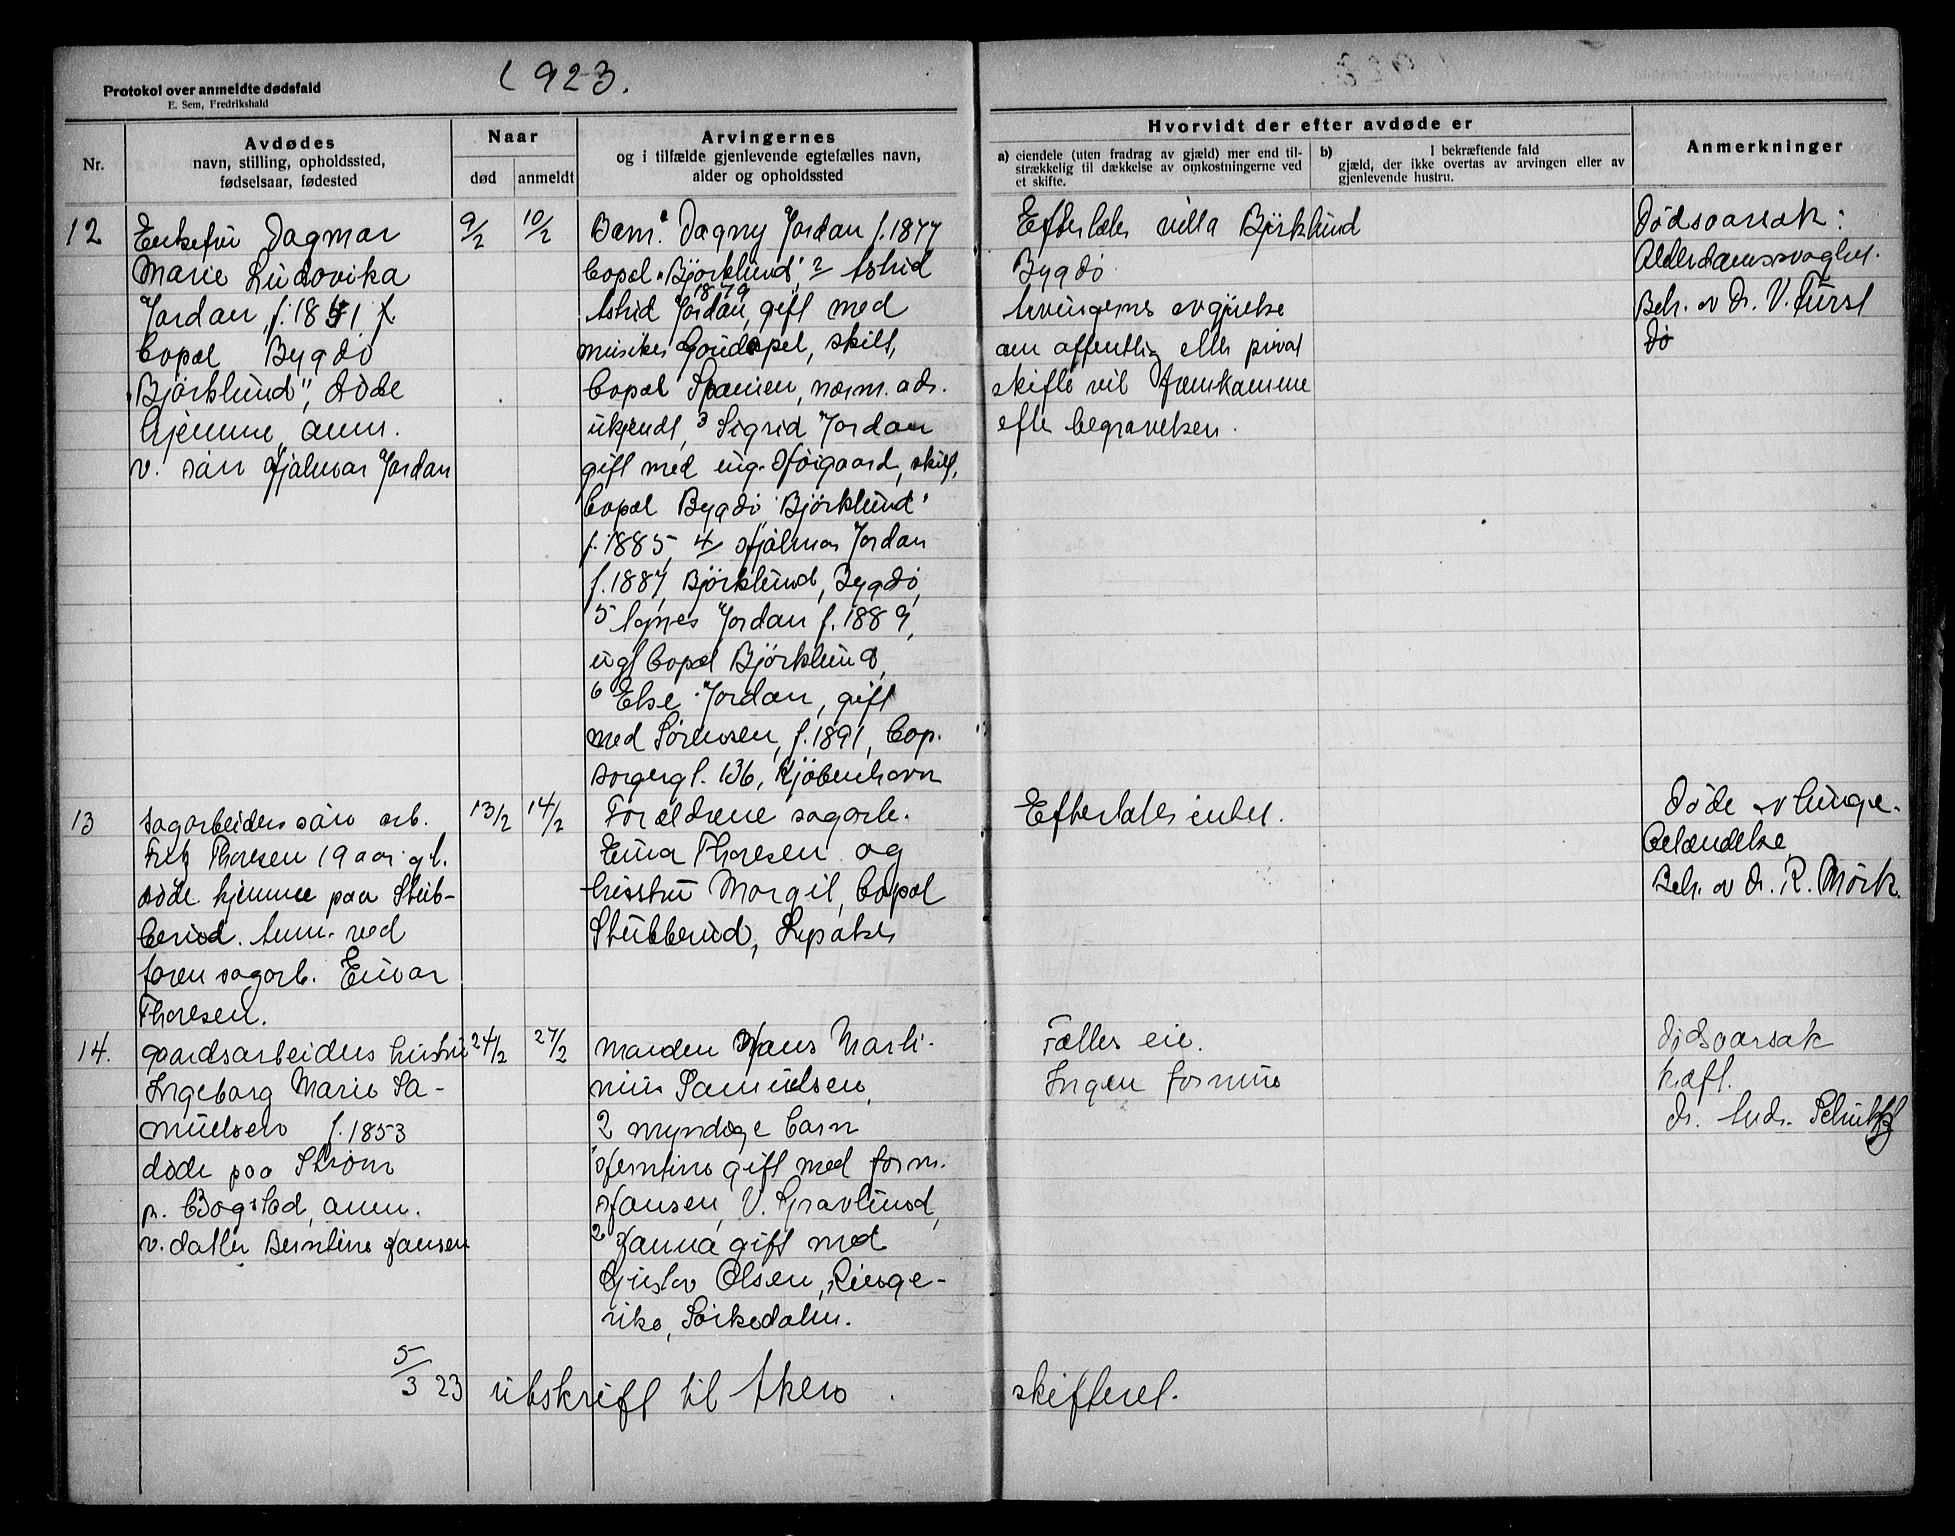 1923.
Protokol over anmeldte dødsfald
E. Sem, Fredrikshald
Nr.
Avdødes
navn, stilling, opholdssted,
fødselsaar, fødested
Naar
død
anmeldt
Arvingernes
og i tilfælde gjenlevende egtefælles navn,
alder og opholdssted
Hvorvidt der efter avdøde er
a) eiendele (uten fradrag av gjæld) mer end til-
strækkelig til dækkelse av omkostningerne ved
et skifte.
b) I bekræftende fald
gjæld, der ikke overtas av arvingen eller av
gjenlevende hustru.
Anmerkninger
12
Enkefru Dagmar
Marie Ludovika
Jordan, f. 1851,
bopæl Bygdö
"Björklund", døde
hjemme, anm.
v. søn Hjalmar Jordan
9/2
10/2
Barn: Dagny Jordan f. 1877
bopæl "Björklund", 2 Astrid
1879
Astrid Jordan, gift med
musiker, skilt,
bopæl Spanien, nærm. adr.
ukjendt, 3 Sigrid Jordan
gift med ing. Høigaard, skilt,
bopæl Bygdö "Björklund"
f. 1885, 4/ Hjalmar Jordan
f. 1887, Björklund, Bygdö,
5 Agnes Jordan f. 1889,
ugf bopæl Björklund,
6 Else Jordan, gift
med Sørensen, f. 1891, bop.
sorgergt. 136, Kjöbenhavn
Efterlater villa Björklund
Bygdö
Arvingernes avgjørelse
om offentlig eller privat
skifte vil fremkomme
efter begravelsen.
Dødsaarsak:
Alderdomssvaghet.
Beh. av Dr. V. Fürst
dø
13
Sagarbeiders søn arb.
Fritz Thoresen 19 aar gl.
døde hjemme paa Stub-
berud. Anm. ved
faren sagarb. Einar
Thoresen.
13/2
14/2
Forældrene sagarb.
Einar Thoresen og
hustru Margit, bopæl
Stubberud, Lysaker
Efterlater intet.
Døde av lunge-
betændelse
Beh. av dr. R. Mörk.
14.
gaardsarbeiders hustru
Ingeborg Marie Sa-
muelsen f. 1853
døde paa Strøm
p. Bogstad, anm.
v. datter Berntine Hansen
24/2
27/2
Manden Hans Marti-
nius Samuelsen,
2 myndige barn
1 Berntine gift med form.
Hansen, V. Gravlund,
2 Hanna gift med
Gustav Olsen, Ringe-
rike, Sørkedalen.
Fælles eie.
Ingen formue
Dødsaarsak
kræft.
dr. Andr. Schultz
5/3 23 utskrift til Akers skifteret.